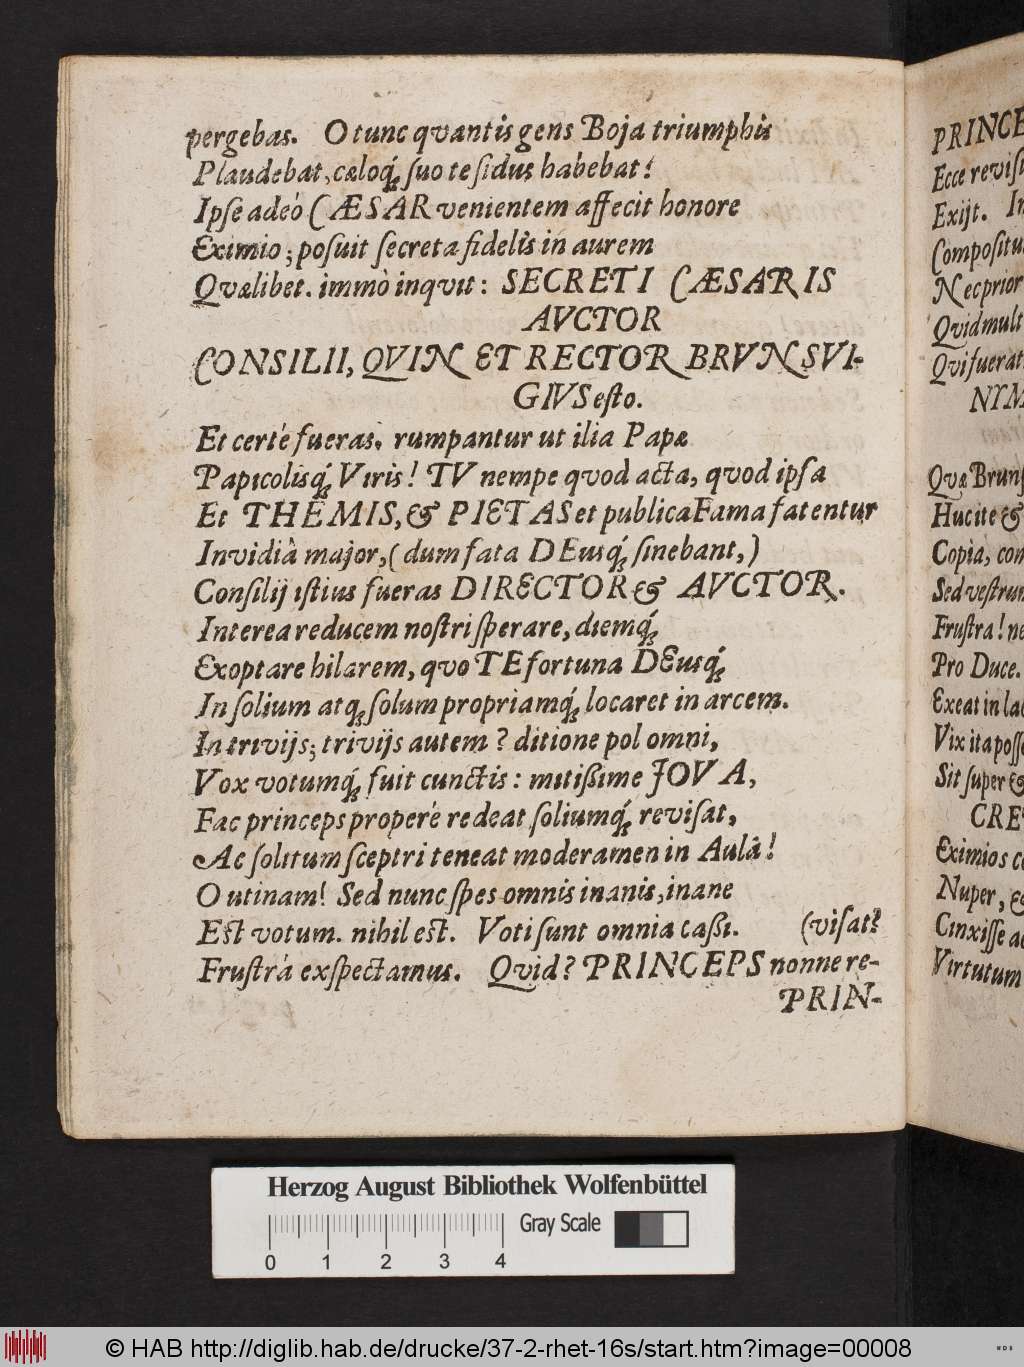 pergebas. O tunc qvantis gens Boja triumphis
Plaudebat, cæloq́; suo te sidus habebat!
Ipse adeò CÆSAR venientem affecit honore
Eximio; posuit secreta fidelis in aurem
Qvælibet. immò inqvit: SECRETI CÆSARIS
AVCTOR
CONSILII, QVIN ET RECTOR BRVNSVI-
GIVS esto.
Et certè fueras. rumpantur ut ilia Papæ
Papicolisq́; Viris! TV nempe qvod acta, qvod ipsa
Et THEMIS, & PIETAS et publica Fama fatentur
Invidiâ major, (dum fata DEusq́; sinebant,)
Consilij istius fueras DIRECTOR & AVCTOR.
Interea reducem nostri sperare, diemq́;
Exoptare hilarem, qvo TE fortuna DEusq́;
In solium atq; solum propriamq́; locaret in arcem.
In trivijs; trivijs autem? ditione pol omni,
Vox votumq́; fuit cunctis: mitißime JOVA,
Fac princeps properè redeat soliumq́; revisat,
Ac solitum sceptri teneat moderamen in Aulâ!
O utinam! Sed nunc spes omnis inanis, inane
Est votum. nihil est. Voti sunt omnia caßi. (visat?
Frustrà exspectamus. Qvid? PRINCEPS nonne re-
PRIN-
PRINCE
Ecce revis
Exijt. In
Compositu
Nec prior
Qvid mult
Qvi fuerat
NYM
Qvæ Bruns
Huc ite &
Copia, con
Sed vestrum
Frustra! ne
Pro Duce.
Exeat in la
Vix ita posse
Sit super &
CRE
Eximios c
Nuper, &
Cinxisse a
Virtutum
Herzog August Bibliothek Wolfenbüttel
Gray Scale
0 1 2 3 4
© HAB http://diglib.hab.de/drucke/37-2-rhet-16s/start.htm?image=00008